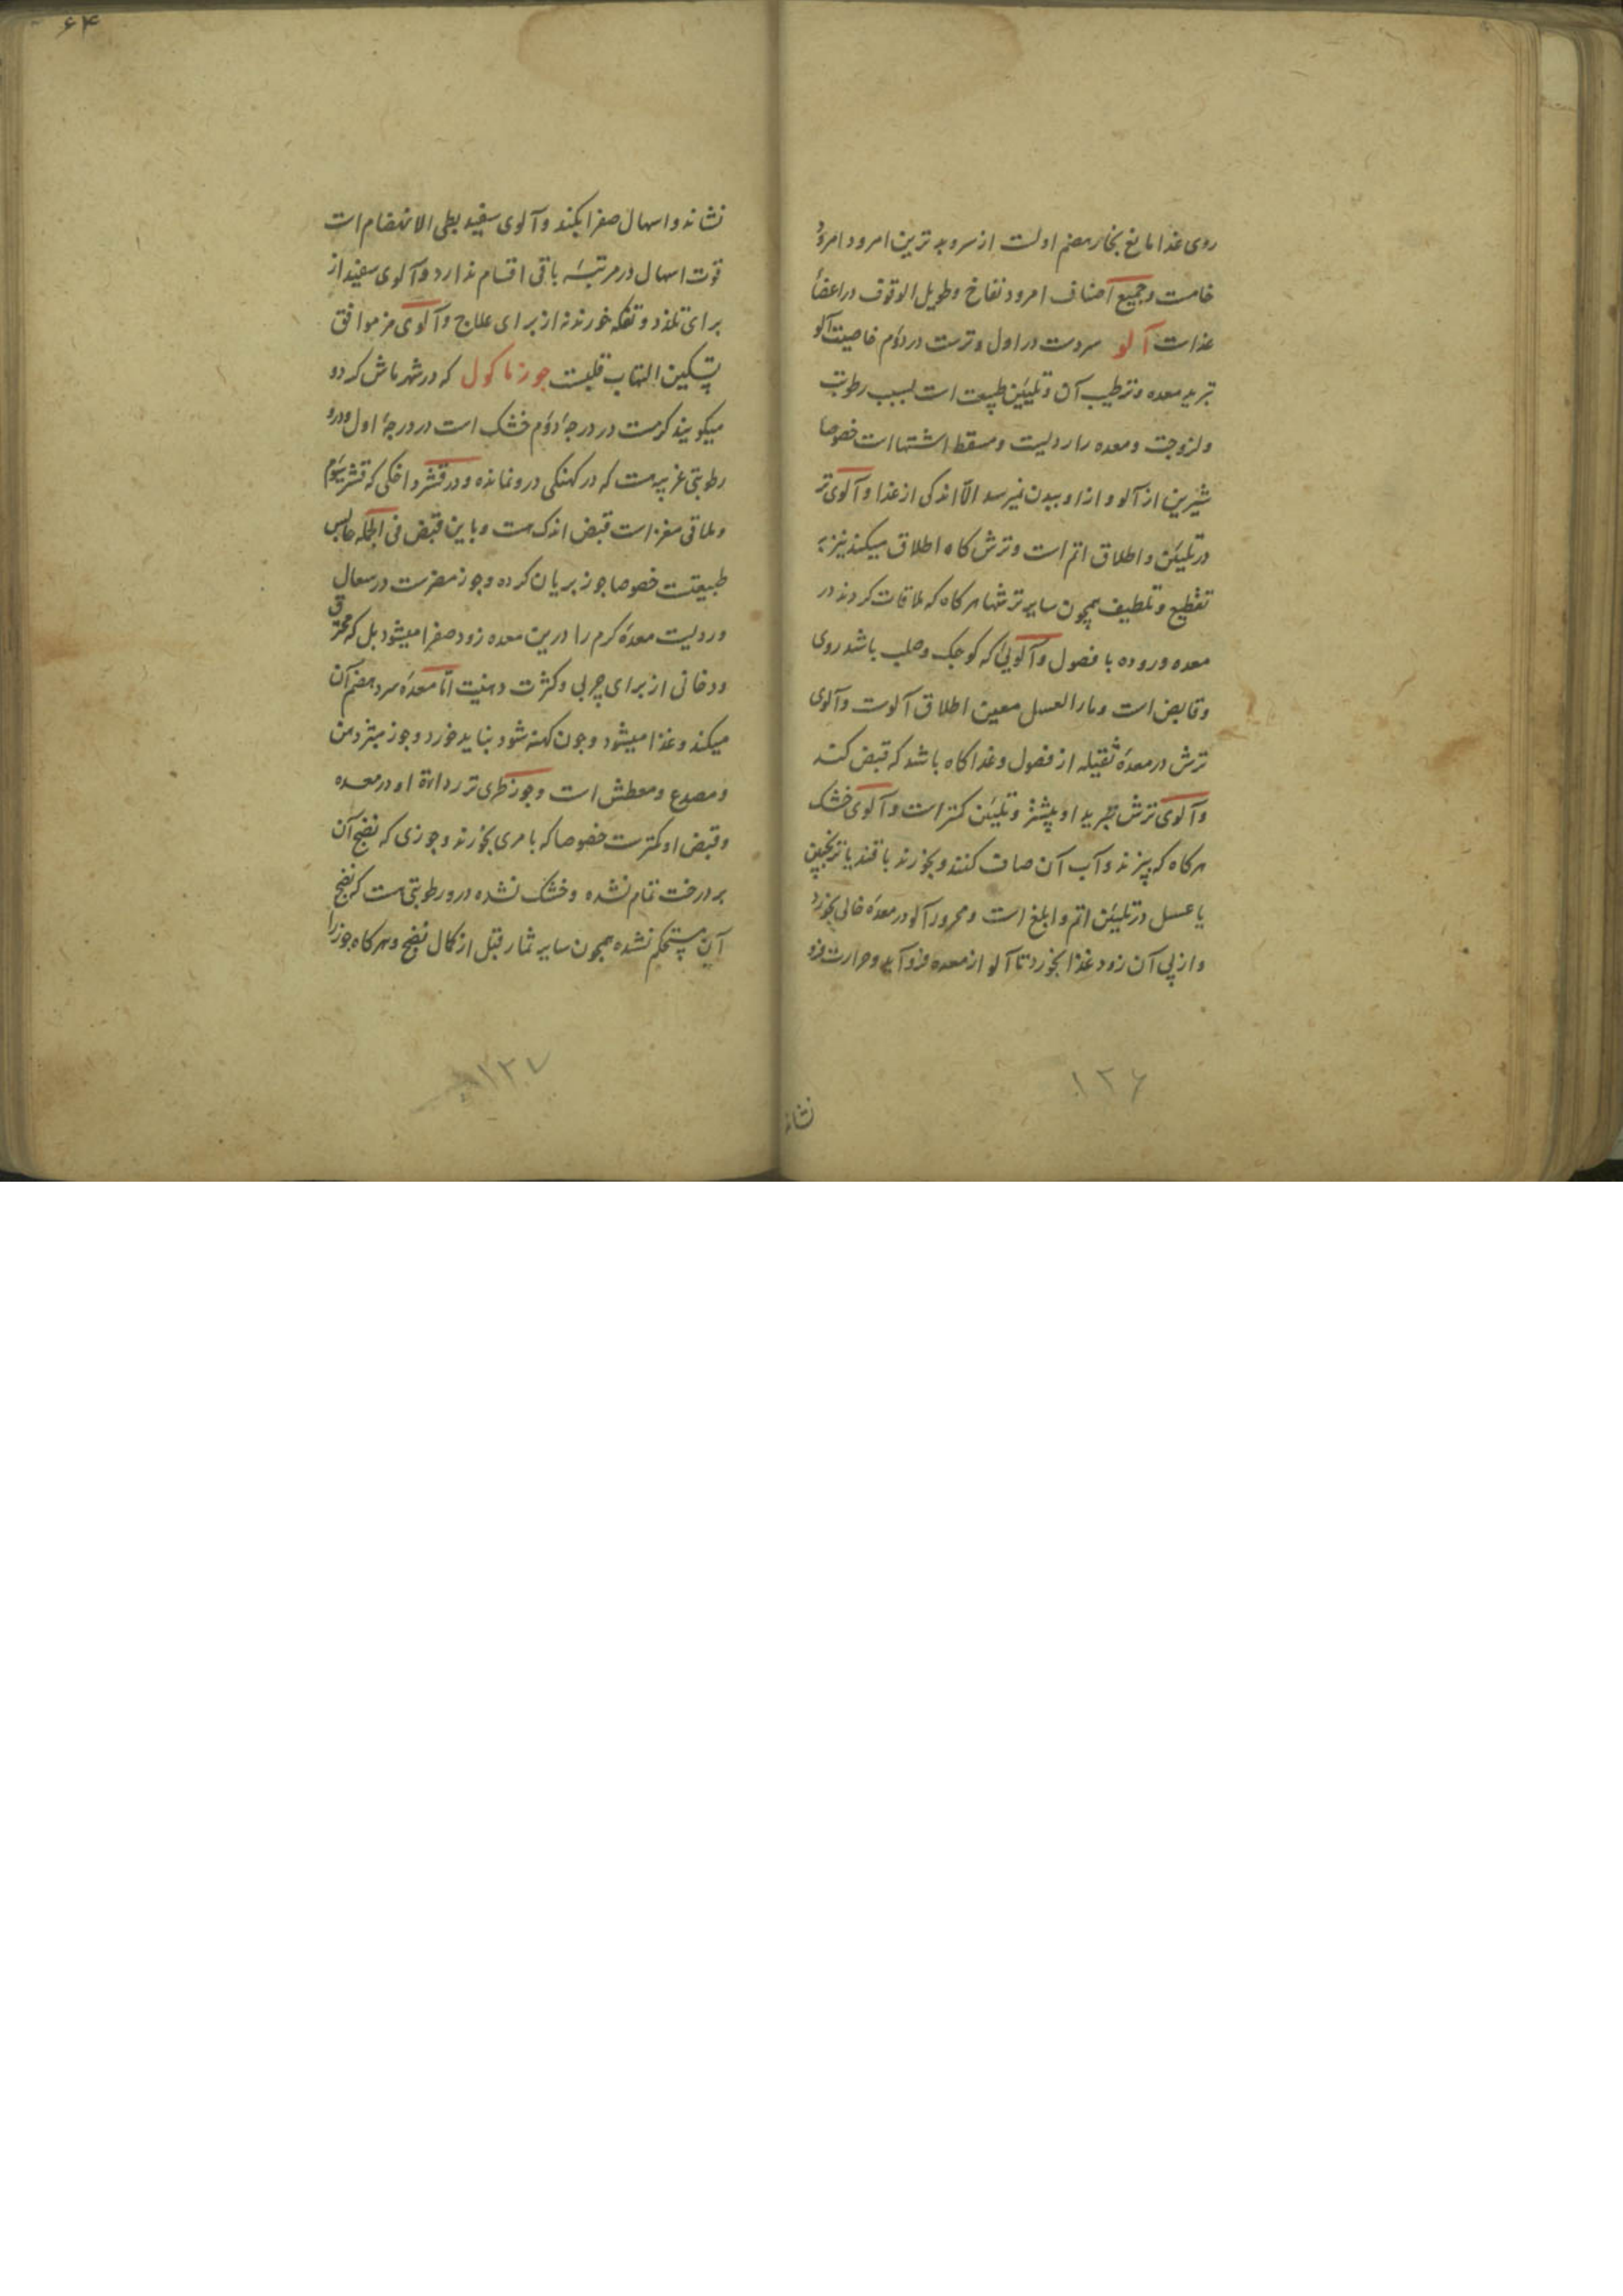 روی غذا مانع بخار هضم اولست از سر و بدترین امرود امرود
خامست و جمیع اصناف امرود نفاخ و طویل الوقوف در اعضأ
غذاست آلو سردست در اول و ترست در دوّم خاصیت آلو
تبرید معده و ترطیب آن و تلیین طبیعت است بسبب رطوبت
و لزوجت و معده را ردیست و مسقط اشتها است خصوصا
شیرین از آلو و ازا و ببدن نمیرسد الّا اندکی از غذا و آلوی تر
در تلیین و اطلاق اتم است و ترش کاه اطلاق میکند نیز به
تقطیع و تلطیف همچون سایر ترشها هر کاه که ملاقات کردند در
معده و روده با فضول و آلویی که کوجک و صلب باشد روی
و قابض است و مار العسل معین اطلاق آلوست و آلوی
ترش در معدهٔ ثقیله از فضول و غذا کاه باشد که قبض کند
و آلوی ترش تبرید او بیشتر و تلیین کمتر است و آلوی خشک
هر کاه که پیزند و آب آن صاف کنند و بخورند با قند یا ترنجبین
یا عسل در تلیین اتم و ابلغ است و محرور آلو در معدهٔ خالی بخورد
و از پی آن زود غذا بخورد تا آلو از معده فرو آید و حرارت فرو
نشاند
۱۲۶
۶۴
نشاند و اسهال صفرا بکند و آلوی سفید بطی الانهضام است
قوت اسهال در مرتبهٔ باقی اقسام ندارد و آلوی سفید از
برای تلذذ و تفکه خورند نه از برای علاج و آلوی مز موافق
تسکین التهاب قلبست جوز ماکول که در شهر ماش کردو
میکویند کرمست در درجهٔ دوّم خشک است در درجهٔ اول و درو
رطوبتی غریبه هست که در کهنکی درو نمانده و در قشر داخلی که قشر سوّم
و ملاقی مغز است قبض اندک هست و با این قبض فی الجمله حابس
طبیعتست خصوصا جوز بریان کرده و جوز مضرست در سعال
و ردیست معدهٔ کرم را درین معده زود صفرا میشود بل که محترق
و دخانی از برای چربی و کثرت دهنیت امّا معدهٔ سرد هضم آن
میکند و غذا میشود و چون کهنه شود نباید خورد و جوز مبثر دهن
و مصدع و معطش است و جوز طری تر رداءة او در معده
و قبض او کمترست خصوصا که با مری بخورند و جوزی که نضج آن
بر درخت تمام نشده و خشک نشده درو رطوبتی هست که نضج
آن مستحکم نشده همچون سایر ثمار قبل از کمال نضج و هر کاه جوز را
۱۲۷